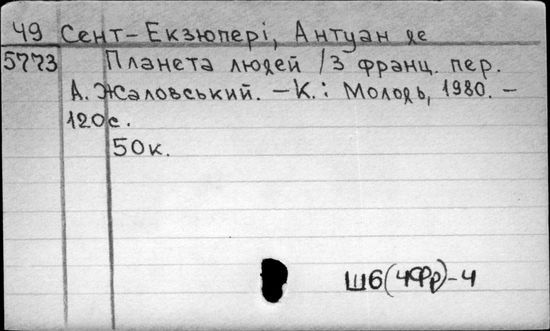 49 Сент-Екзюпері, Антуан де
5773 Планета людей / З франц. пер.
А. Жаловський. – К.: Молодь, 1980. –
120с.
50к.
Ш6(4Фр)-4